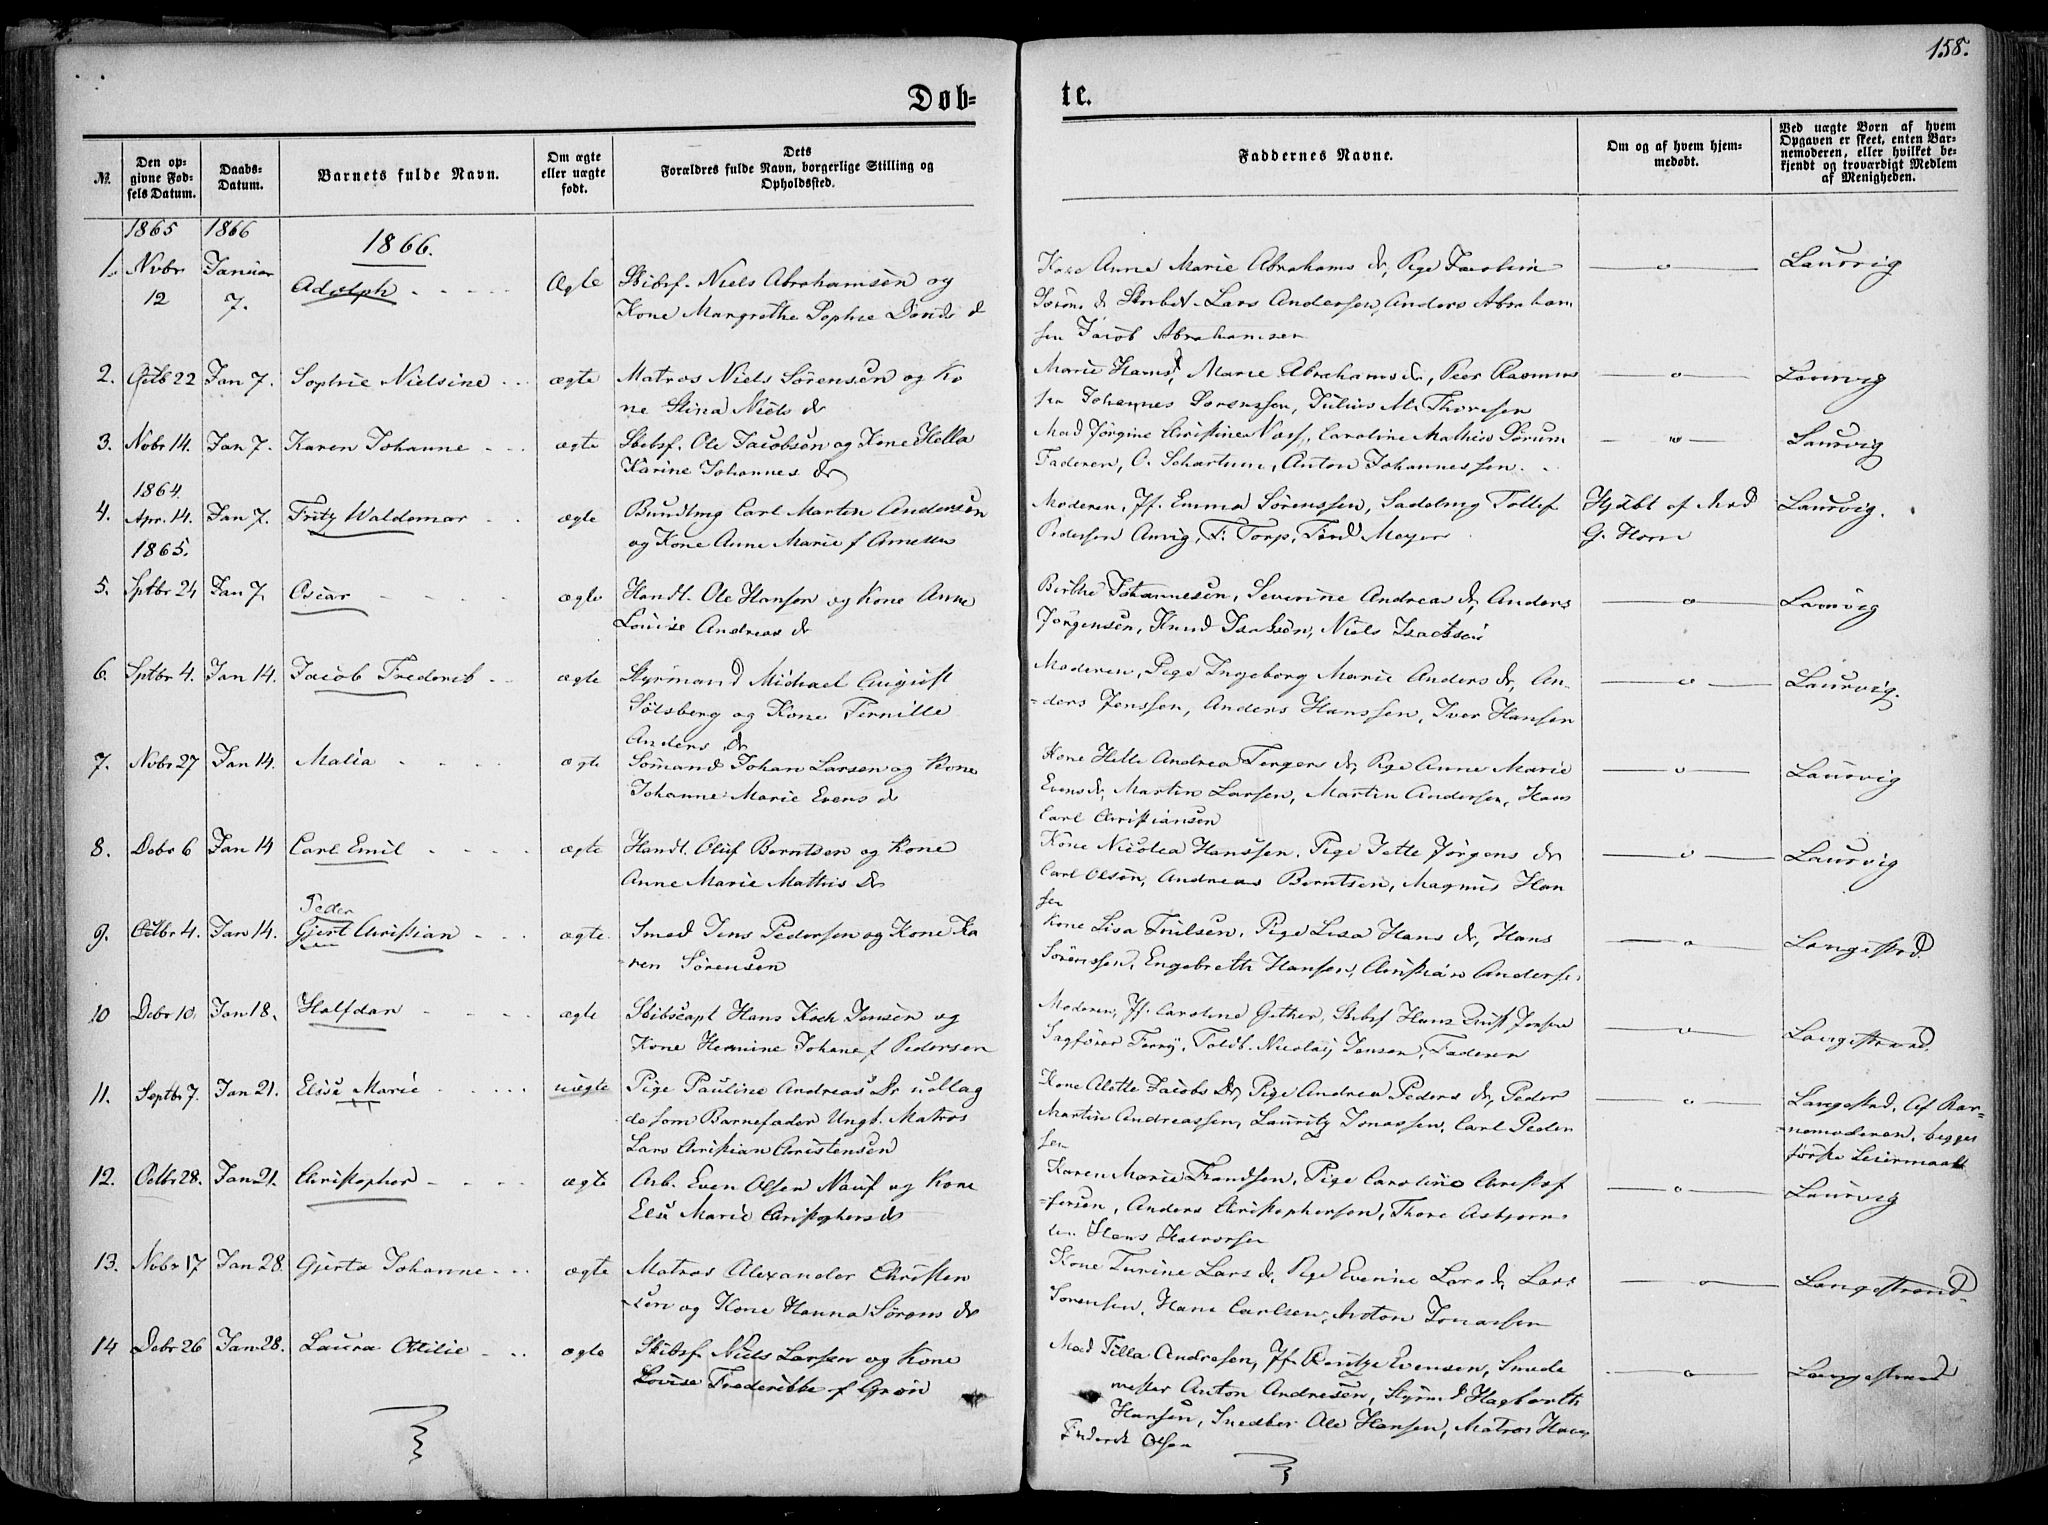 158.
Døb-
te.
№.
Den op-
givne Fød-
sels Datum.
Daabs-
Datum.
Barnets fulde Navn.
Om ægte
eller uægte
født.
Dets
Forældres fulde Navn, borgerlige Stilling og
Opholdssted.
Faddernes Navne.
Om og af hvem hjem-
medøbt.
Ved uægte Børn af hvem
Opgaven er skeet, enten Bar-
nemoderen, eller hvilket be-
kjendt og troværdigt Medlem
af Menigheden.
1865 1866
1866.
1. Nvbr 12 Januar 7. Adolph Ægte
Skibsf. Niels Abrahamsen og
Kone Margrethe Sophie
Kone Anne Marie Abrahams dr, Pige
Lars Andersen, Anders Abraham
sen Jacob Abrahamsen
Laurvig
2. Octb 22 Jan 7. Sophie Nielsine ægte
Matros Niels Sørensen og Ko
ne Stina Niels dr
Marie Hans dr, Marie Abrahams dr, Peer Rasmus
sen Johannes Sorenssen, Julius M. Thoresen
Laurvig
3. Nvbr 14. Jan 7. Karen Johanne ægte
Skibsf. Ole Jacobsen og Kone Hella
Karine Johannes dr
Mad Jørgine Christine Næss, Caroline Mathea Sørum
Faderen, O. Schartum, Anton Johannessen.
Laurvig
1864.
4. Apr. 14. Jan 7. Fritz Waldemar ægte
Bundtmg Carl Martin Andersen
og Kone Anne Marie f
Moderen, Jf. Emma Sørenssen, Saddlmg Tollef
Pedersen Anvig, F. Torp, Ferd Meyer
Hjdøbt af Mad
G. Horn
Laurvig.
1865.
5. Sptbr 24 Jan 7. Oscar ægte
Handl. Ole Hansen og Kone Anne
Louise Andreas dr
Birthe Johannesen, Severine Andreas dr, Anders
Jørgensen, Knud Isaksen, Niels Isachsen
Laurvig
6. Sptbr 4. Jan 14. Jacob Frederik ægte
Styrmand Michael August
Solsberg og Kone Pernille
Anders dr
Moderen, Pige Ingeborg Marie Anders dr, An-
=ders Jenssen, Anders Hanssen, Iver Hansen
Laurvig.
7. Nvbr 27 Jan 14. Malia ægte
Sømand Johan Larsen og Kone
Johanne Marie Evens dr
Kone Helle Andrea Torgers dr, Pige Anne Marie
Evens dr, Martin Larsen, Martin Andersen, Hans
Carl Christiansen
Laurvig
8. Debr 6 Jan 14 Carl Emil ægte
Handl. Oluf Berntsen og Kone
Anne Marie Mathis dr
Kone Nicolea Hanssen, Pige Jette Jørgens dr
Carl Olsen, Andreas Berntsen, Magnus Han
sen
Laurvig
9. Octbr 4. Jan 14. Peder
Gjert Christian ægte
Smed Jens Pedersen og Kone Ka
=ren Sørensen
Kone Lisa Truelsen, Pige Lisa Hans dr, Hans
Sørenssen, Engebreth Hansen, Christian Anderse
Langestrd
10 Debr 10. Jan 18. Halfdan ægte
Skibscapt Hans Koch Jensen og
Kone Hermine Johane f Pedersen
Moderen, Jf. Caroline Gether, Skibsf Hans Jensen
Sagfører Ferry, Toldb. Nicolaij Jensen, Faderen
Langestrand.
11. Septbr 7. Jan 21. Elise Marie uægte
Pige Pauline Andreas Dr udlag
de som Barnefader Ungk. Matros
Lars Christian Christensen
Kone Alette Jacobs Dr, Pige Andrea Peders dr, Peder
Martin Andreassen, Lauritz Jonassen, Carl Peder
sen
Langestrd, Af Bar-
=nemoderen, begges
første Leiermaal
12. Octbr 28. Jan 21. Christopher ægte
Arb. Even Olsen og Kone
Else Marie Christophers dr
Karen Marie Frandsen, Pige Caroline Christof
=fersen, Anders Christophersen, Thore Asbjørn
sen Hans Halvorsen
Laurvig
13. Nvbr 17 Jan 28. Gjerta Johanne ægte
Matros Alexander Christen
sen og Kone Hanna Sørens dr
Kone Turine Lars dr, Pige Everine Lars dr, Lars
Sorensen, Hans Carlsen, Anton Jonassen
Langestrand.
14 Debr 26 Jan 28. Laura Ottilie ægte
Skibsf. Niels Larsen og Kone
Lovise Frederikke f Grøn
Mad Tilla Andresen, Jf. Evensen, Smede
mester Anton Andresen, Styrmd Hagbarth
Hansen, Snedker Ole Hansen, Matros Hans
Frederik Olsen
Langestrand